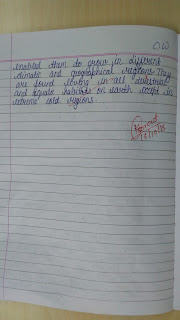 C.W
enabled them to grow in different
climatic and geographical regions. They
are found living in all terrestrial
and aquatic habitats on earth except in
extreme cold regions